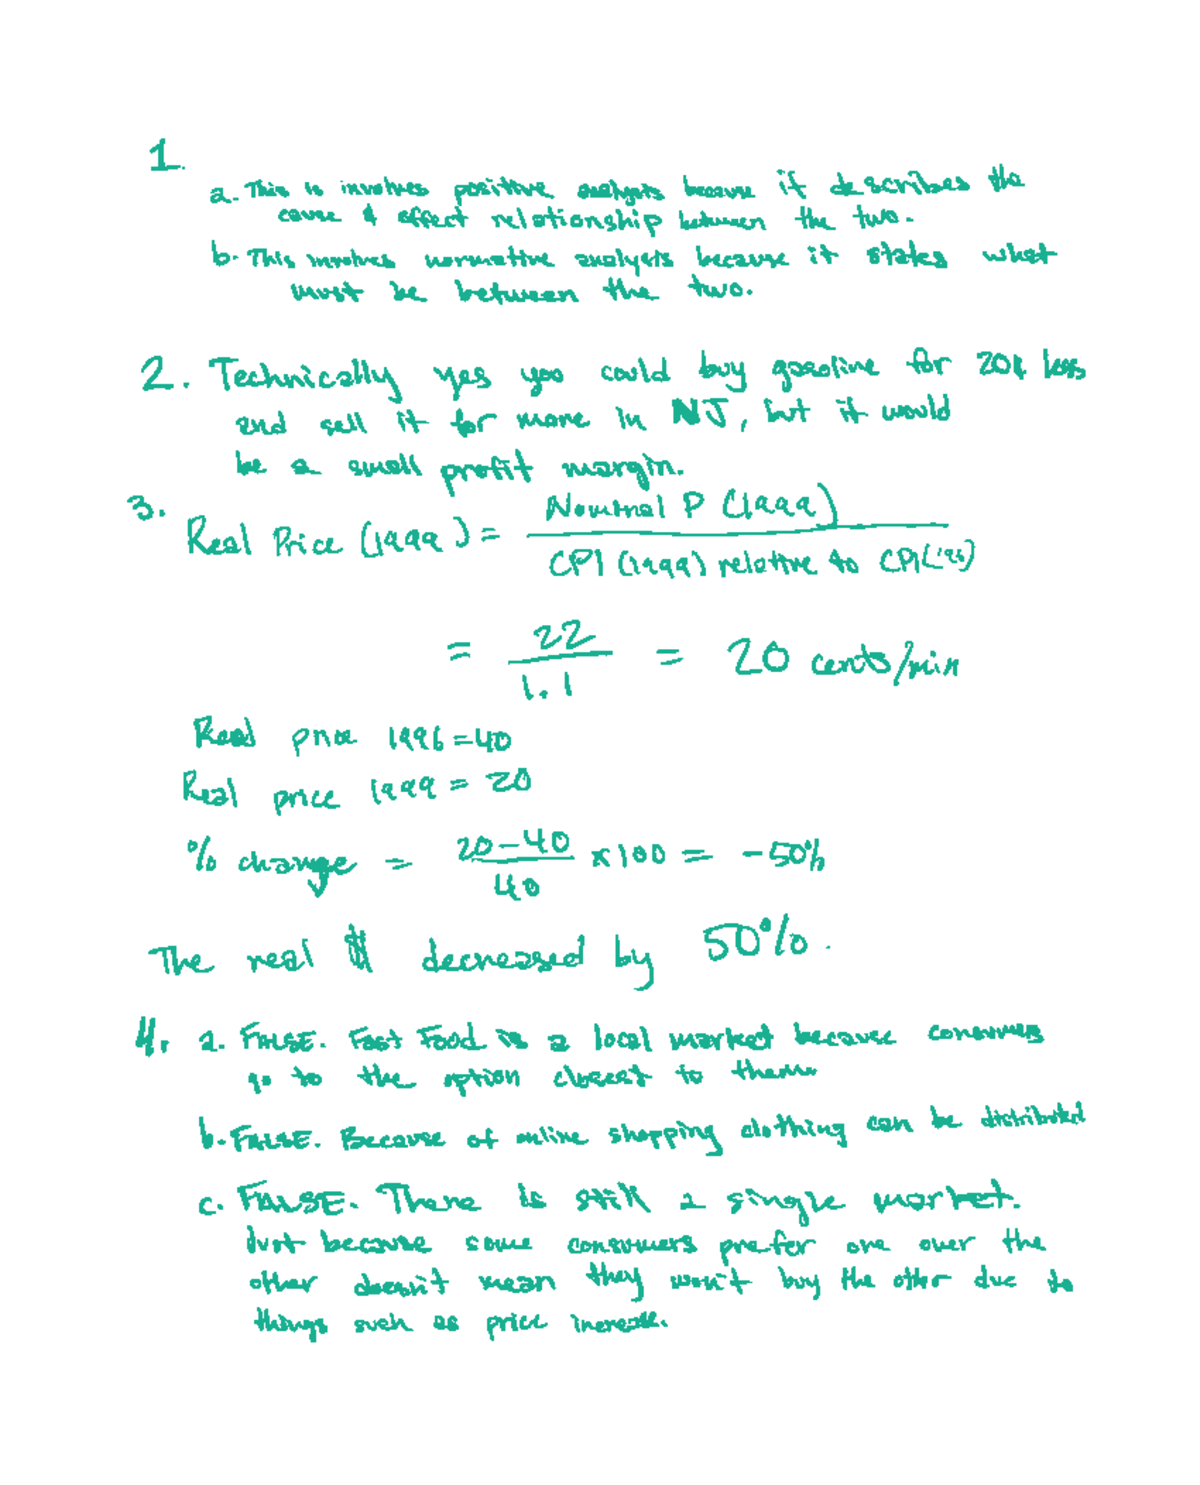 1.
a. This is involves positive analysis because it describes the
cause & effect relationship between the two.
b. This involves normative analysis because it states what
must be between the two.
2. Technically yes you could buy gasoline for 20¢ less
and sell it for more in NJ, but it would
be a small profit margin.
3.
Real Price (1999) = Nominal P (1999)
CPI (1999) relative to CPI('96)
= 22 / 1.1 = 20 cents/min
Real price 1996 = 40
Real price 1999 = 20
% change = 20-40 / 40 x100 = -50%
The real $ decreased by 50%.
4. a. FALSE. Fast Food is a local market because consumers
go to the option closest to them.
b. FALSE. Because of online shopping clothing can be distributed
c. FALSE. There is still a single market.
Just because some consumers prefer one over the
other doesn't mean they won't buy the other due to
things such as price increase.